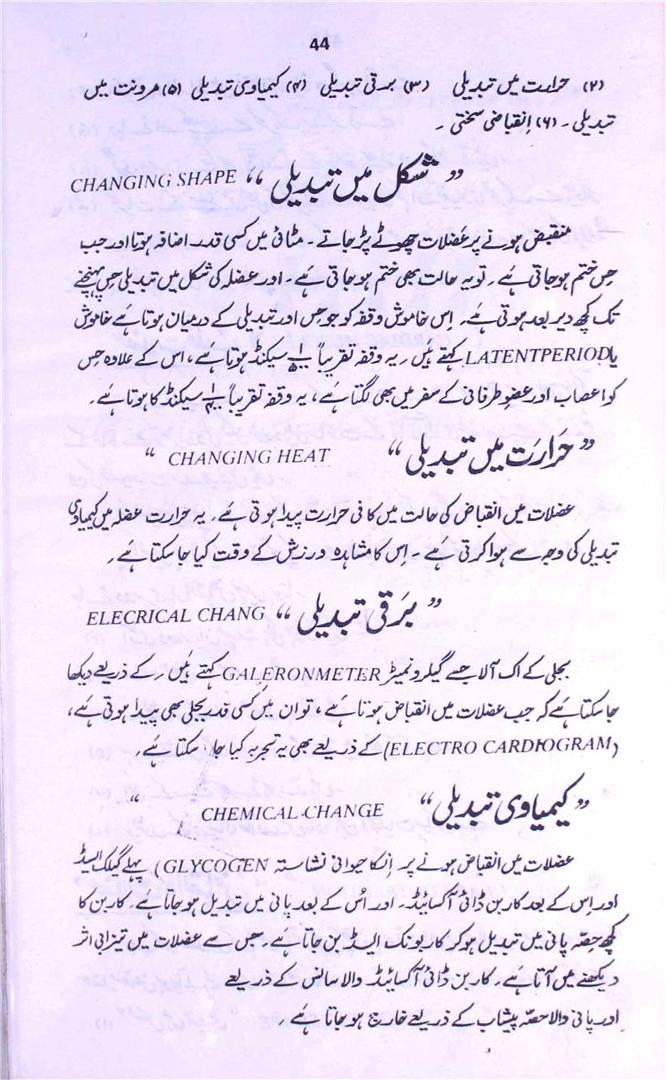 44
(۲) حرارت میں تبدیلی (۳) برقی تبدیلی (۴) کیمیاوی تبدیلی (۵) مرونت میں
تبدیلی۔ (۶) اِنقباضی سختی۔
”شکل میں تبدیلی“ CHANGING SHAPE
منقبض ہونے پر عضلات چھوٹے پڑ جاتے۔ مٹائی میں کسی قدر اضافہ ہوتا اور جب
حِس ختم ہو جاتی ہے۔ تو یہ حالت بھی ختم ہو جاتی ہے۔ اور عضلہ کی شکل میں تبدیلی حِس پہنچنے
تک کچھ دیر بعد ہوتی ہے۔ اِس خاموش وقفہ کو جو حِس اور تبدیلی کے درمیان ہوتا ہے خاموش
یا LATENTPERIOD کہتے ہیں۔ یہ وقفہ تقریباً سیکنڈ ہوتا ہے، اس کے علاوہ حِس
کو اعصاب اور عضوِ طرفانی کے سفر میں بھی لگتا ہے، یہ وقفہ تقریباً سیکنڈ کا ہوتا ہے۔
”حَرارَت میں تبدیلی“ CHANGING HEAT “
عضلات میں انقباض کی حالت میں کافی حرارت پیدا ہوتی ہے۔ یہ حرارت عضلہ میں کیمیاوی
تبدیلی کی وجہ سے ہوا کرتی ہے۔ اِس کا مشاہدہ ورزش کے وقت کیا جا سکتا ہے۔
”بَرقی تبدیلی“ ELECRICAL CHANG
بجلی کے اک آلا جسے گیلرونمیٹر GALERONMETER کہتے ہیں۔ کے ذریعے دیکھا
جا سکتا ہے کہ جب عضلات میں انقباض ہوتا ہے، تو ان میں کسی قدر بجلی بھی پیدا ہوتی ہے،
(ELECTRO CARDIOGRAM) کے ذریعے بھی یہ تجربہ کیا جا سکتا ہے۔
”کیمیاوی تبدیلی“ CHEMICAL CHANGE “
عضلات میں انقباض ہونے پر اِنکا حیوانی نشاستہ GLYCOGEN) پہلے گیلک ایسڈ
اور اِس کے بعد کاربن ڈائی آکسائیڈ۔ اور اس کے بعد پانی میں تبدیل ہو جاتا ہے۔ کاربن کا
کچھ حِصّہ پانی میں تبدیل ہو کر کاربونک ایسڈ بن جاتا ہے۔ جس سے عضلات میں تیزابی اثر
دیکھنے میں آتا ہے۔ کاربن ڈائی آکسائیڈ والا سانس کے ذریعے
اور پانی والا حصّہ پیشاب کے ذریعے خارج ہو جاتا ہے۔